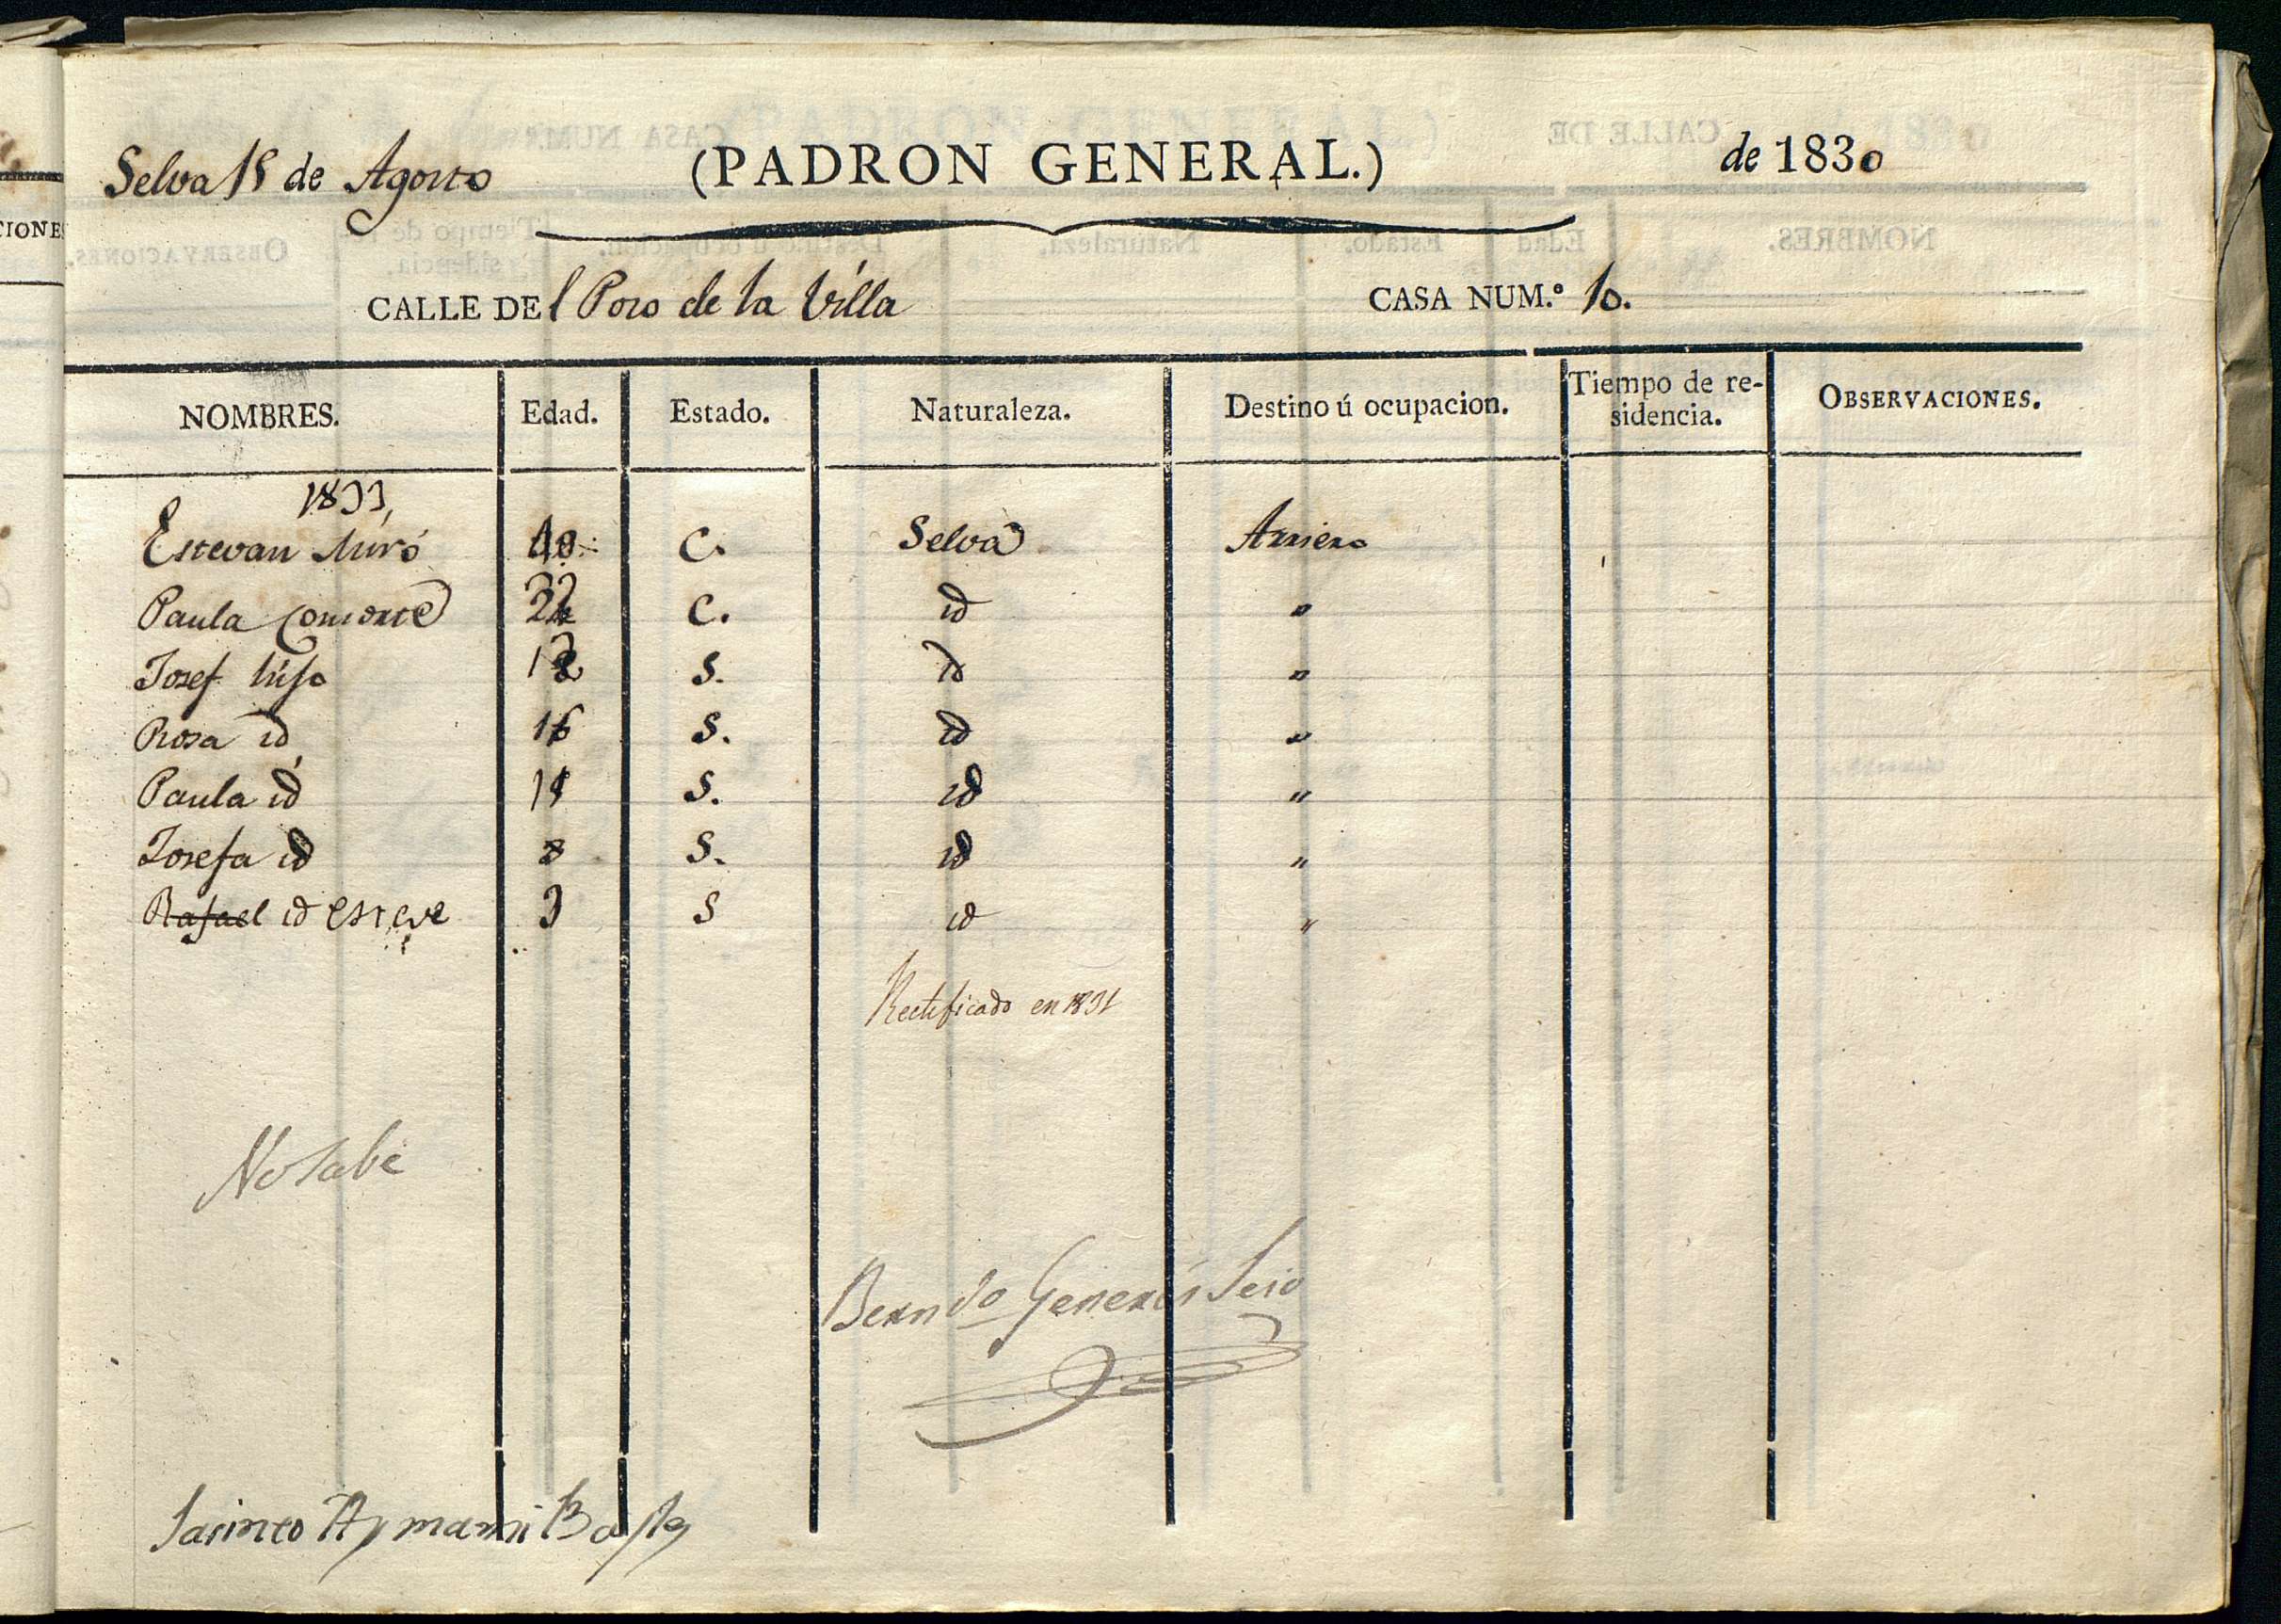 Selva 15 de Agosto (PADRON GENERAL.) de 1830
CALLE DEl Pozo de la Villa CASA NUM.º 10.
NOMBRES. Edad. Estado. Naturaleza. Destino ú ocupacion. Tiempo de residencia. OBSERVACIONES.
1833,
Estevan Miró 40 C. Selva Arriero
Paula Consorte C. id "
Josef hijo S. id "
Rosa id 16 S. id "
Paula id S. id "
Josefa id 8 S. id "
Rafael id esteve 3 S id "
Rectificado en 1831
No sabe
Berndo Generés Srio
Jacinto Aymami Bayle